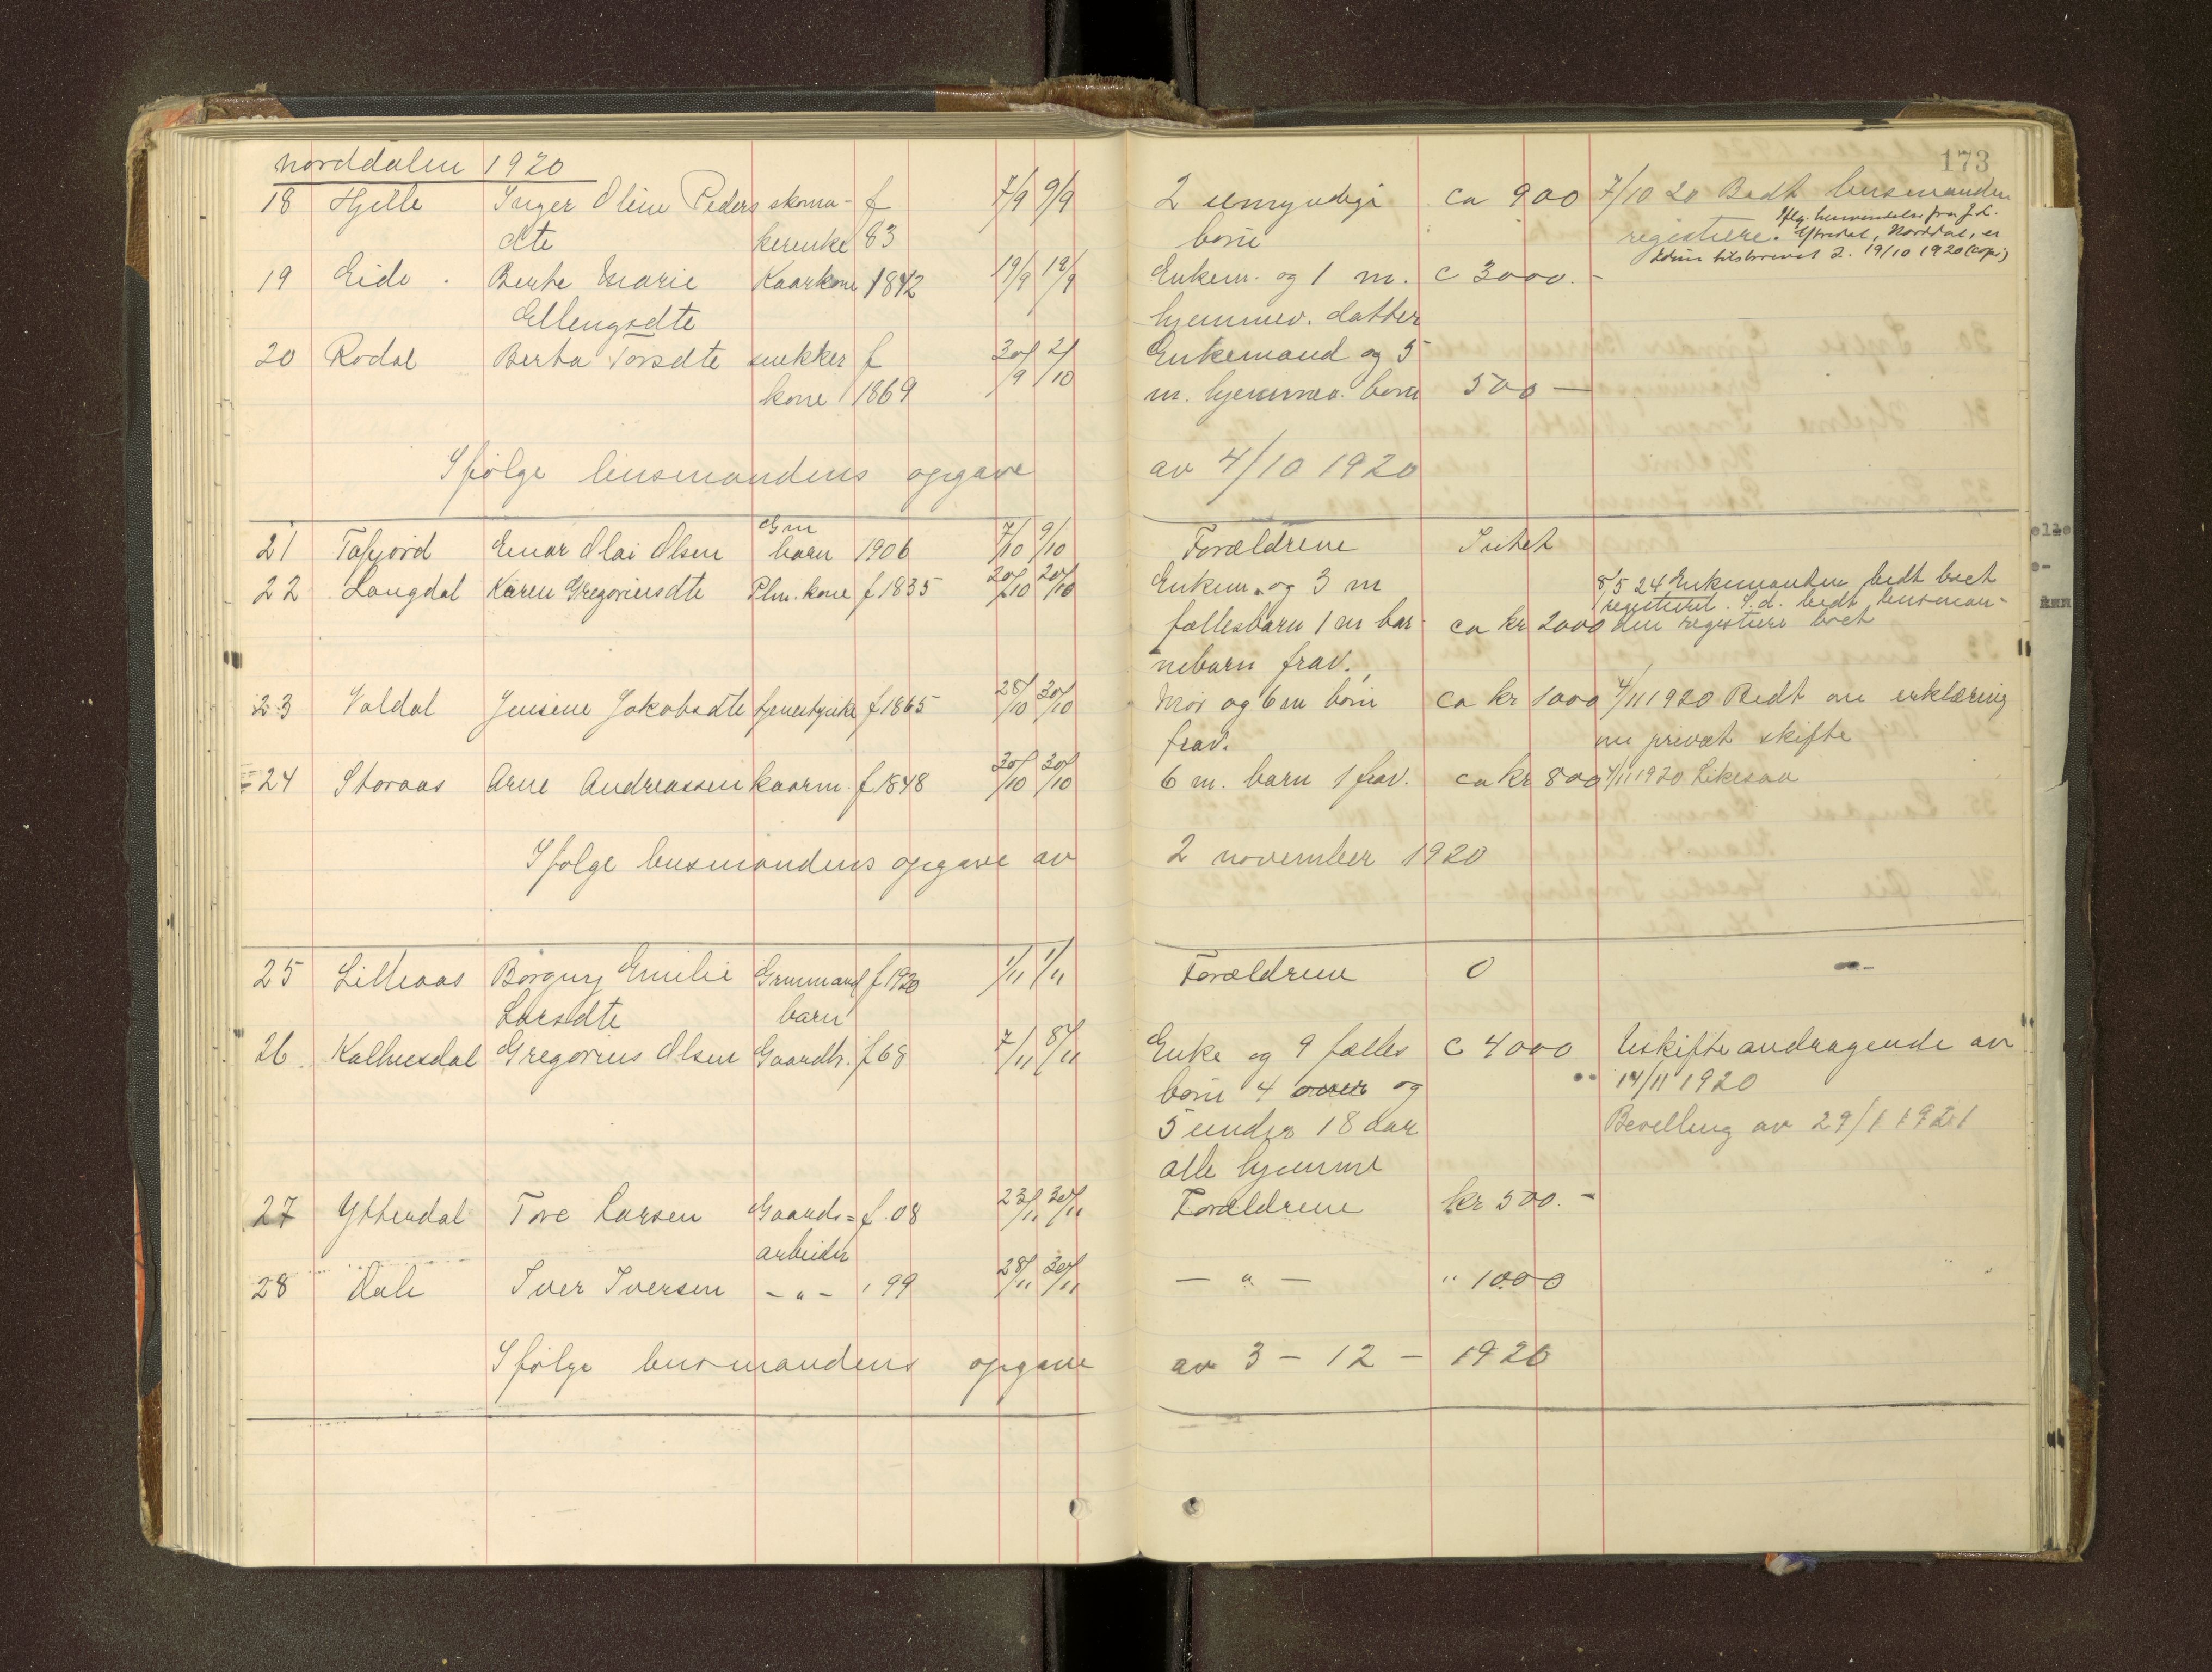 173
Norddalen 1920
18 Hjelle Inger Oline Peders skoma- f 7/9 9/9 2 umyndige ca 900 7/10 20 Bedt lensmanden
dte kerenke 83 børn registrere. Iflg. henvendelse fra J. L.
Ytredal, Norddal, er
tilskrevet 2. 19/10 1920 (copi)
19 Eide . Berte Marie Kaarkone 1842 19/9 19/9 Enkem. og 1 m. c 3000.-
Ellengsdte hjemmev. datter
20 Rødal Berta Torsdte snekker f 30/9 2/10 Enkemand og 5
kone 1869 m. hjemmev. børn 500 —
Ifølge lensmandens opgave av 4/10 1920
21 Tafjord Einar Olai Olsen Gm barn 1906 7/10 9/10 Forældrene Intet
22 Langdal Karen Gregoriusdte Plm. kone f 1835 20/10 20/10 Enkem. og 3 m 8/5 24 Enkemanden bedt boet
registreret. S.d. bedt lensman-
fællesbarn 1 m bar- ca kr 2000 den registrere boet
nebarn frav.
23 Valdal Jensine Jakobsdte tjenestpike f 1865 28/10 30/10 Mor og 6 m børn ca kr 1000 4/11 1920 Bedt om erklæring
frav. om privat skifte
24 Storaas Arne Andreassen kaarm. f 1848 30/10 30/10 6 m. barn 1 frav. ca kr 800 4/11 1920 Likesaa
Ifølge lensmandens opgave av 2 november 1920
25 Lilleaas Borgny Emilie Grmmand f 1920 1/11 1/11 Forældrene 0 —
Larsdte barn
26 Kalhusdal Gregorius Olsen Gaardbr. f 68 7/11 8/11 Enke og 9 fælles c 4000 Uskifteandragende av
børn 4 over og 14/11 1920
5 under 18 aar Bevilling av 29/1 1921
alle hjemme
27 Ytterdal Tore Larsen Gaards= f. 08 23/11 30/11 Forældrene kr 500.-
arbeider
28 Dale Iver Iversen - " - , 99 28/11 30/11 — " — " 1000
Ifølge lensmandens opgave av 3 – 12 – 1920